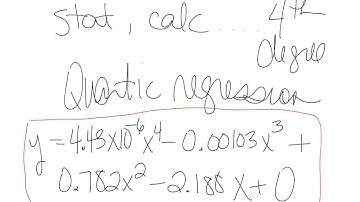 stat, calc ..... 4th
degree
Quantic regression
y = 4.43x10⁻⁶x⁴ - 0.00103x³ +
0.782x² - 2.188x + 0